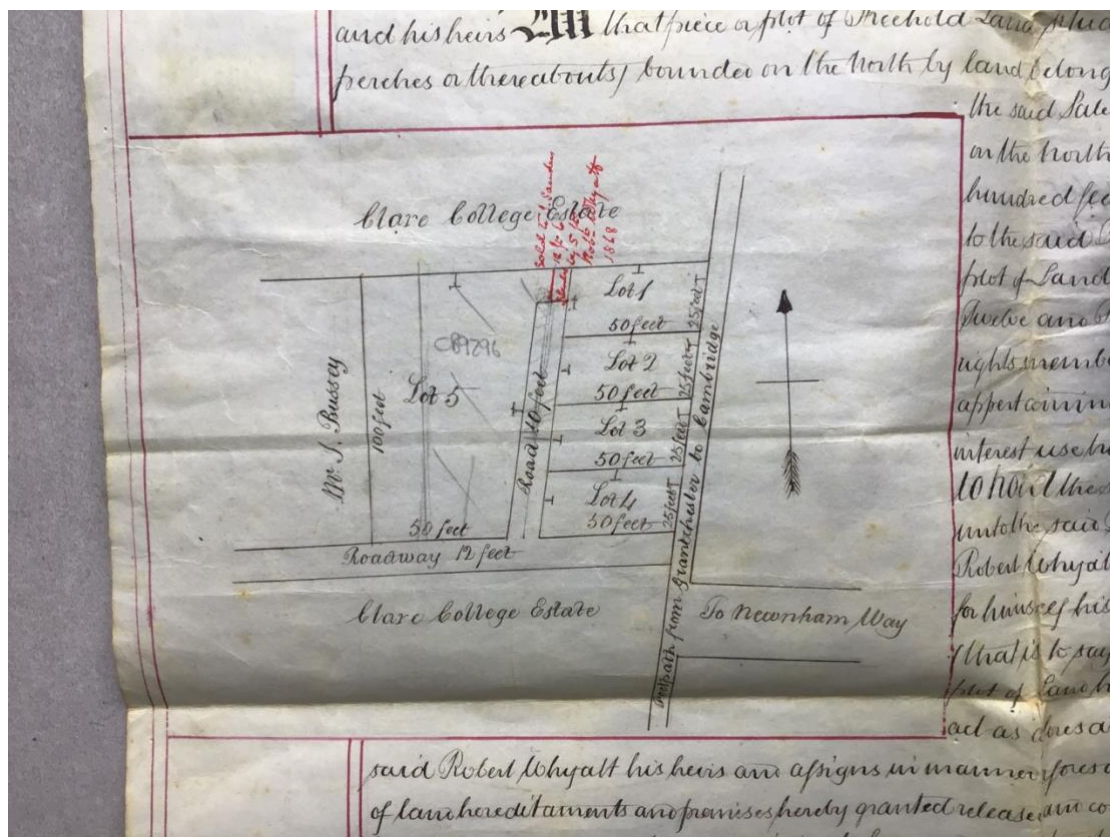 and his heirs All that piece or plot of Freehold Land
perches or thereabouts) bounded on the North by land belong
the said Sale
on the North
hundred fee
to the said
plot of Land
Twelve and
rights membe
appertainin
interest use
to hold the
unto the said
Robert Whyat
for himself his
(that is to say
plot of Land
act as does a
Clare College Estate
Sold to J. Sanders
1868
Lot 1
25 feet
50 feet
Lot 2
25 feet
50 feet
Lot 3
25 feet
50 feet
Lot 4
25 feet
50 feet
Mr. J. Bussey
100 feet
Lot 5
CB9296
Road 10 feet
50 feet
Roadway 12 feet
Clare College Estate
Footpath from Grantchester to Cambridge
To Newnham Way
said Robert Whyatt his heirs and assigns in manner afores
of land hereditaments and premises hereby granted released and co